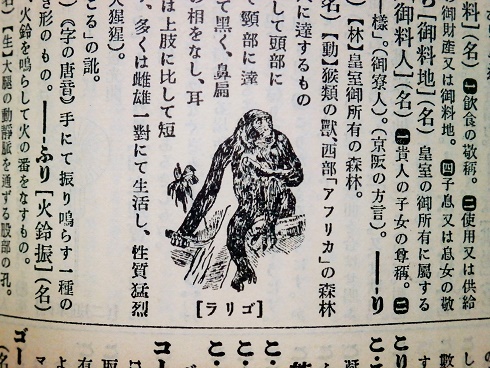 料](名) ㊀飲食の敬稱。㊁使用又は供給
の御財產又は御料地。㊃子息又は息女の敬
ち[御料地](名) 皇室の御所有に屬する
[御料人](名) ㊀貴人の子女の尊稱。㊁
樣」。(御寮人)。(京阪の方言)。――り
林) 皇室御所有の森林。
(名)【動】猴類の獸、西部「アフリカ」の森林
に達するもの
して頭部に
で頸部に達
て黑く、鼻扁
の相をなし、耳
は上肢に比して短
、多くは雌雄一對にて生活し、性質猛烈
大猩猩)。
とる」の訛。
(字の唐音) 手にて振り鳴らす一種の
き形のもの。――ふり[火鈴振](名)
、火鈴を鳴らして火の番をなすもの。
名)【生】大腿の動靜脈を通ずる股部の孔。
[ラリゴ]
こり
す
こ・
こ・
こ・
コー
取
有
よ
マ
ゴー